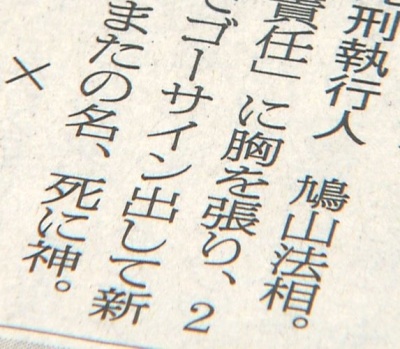 刑執行人　鳩山法相。
責任」に胸を張り、2
でゴーサイン出して新
またの名、死に神。
×